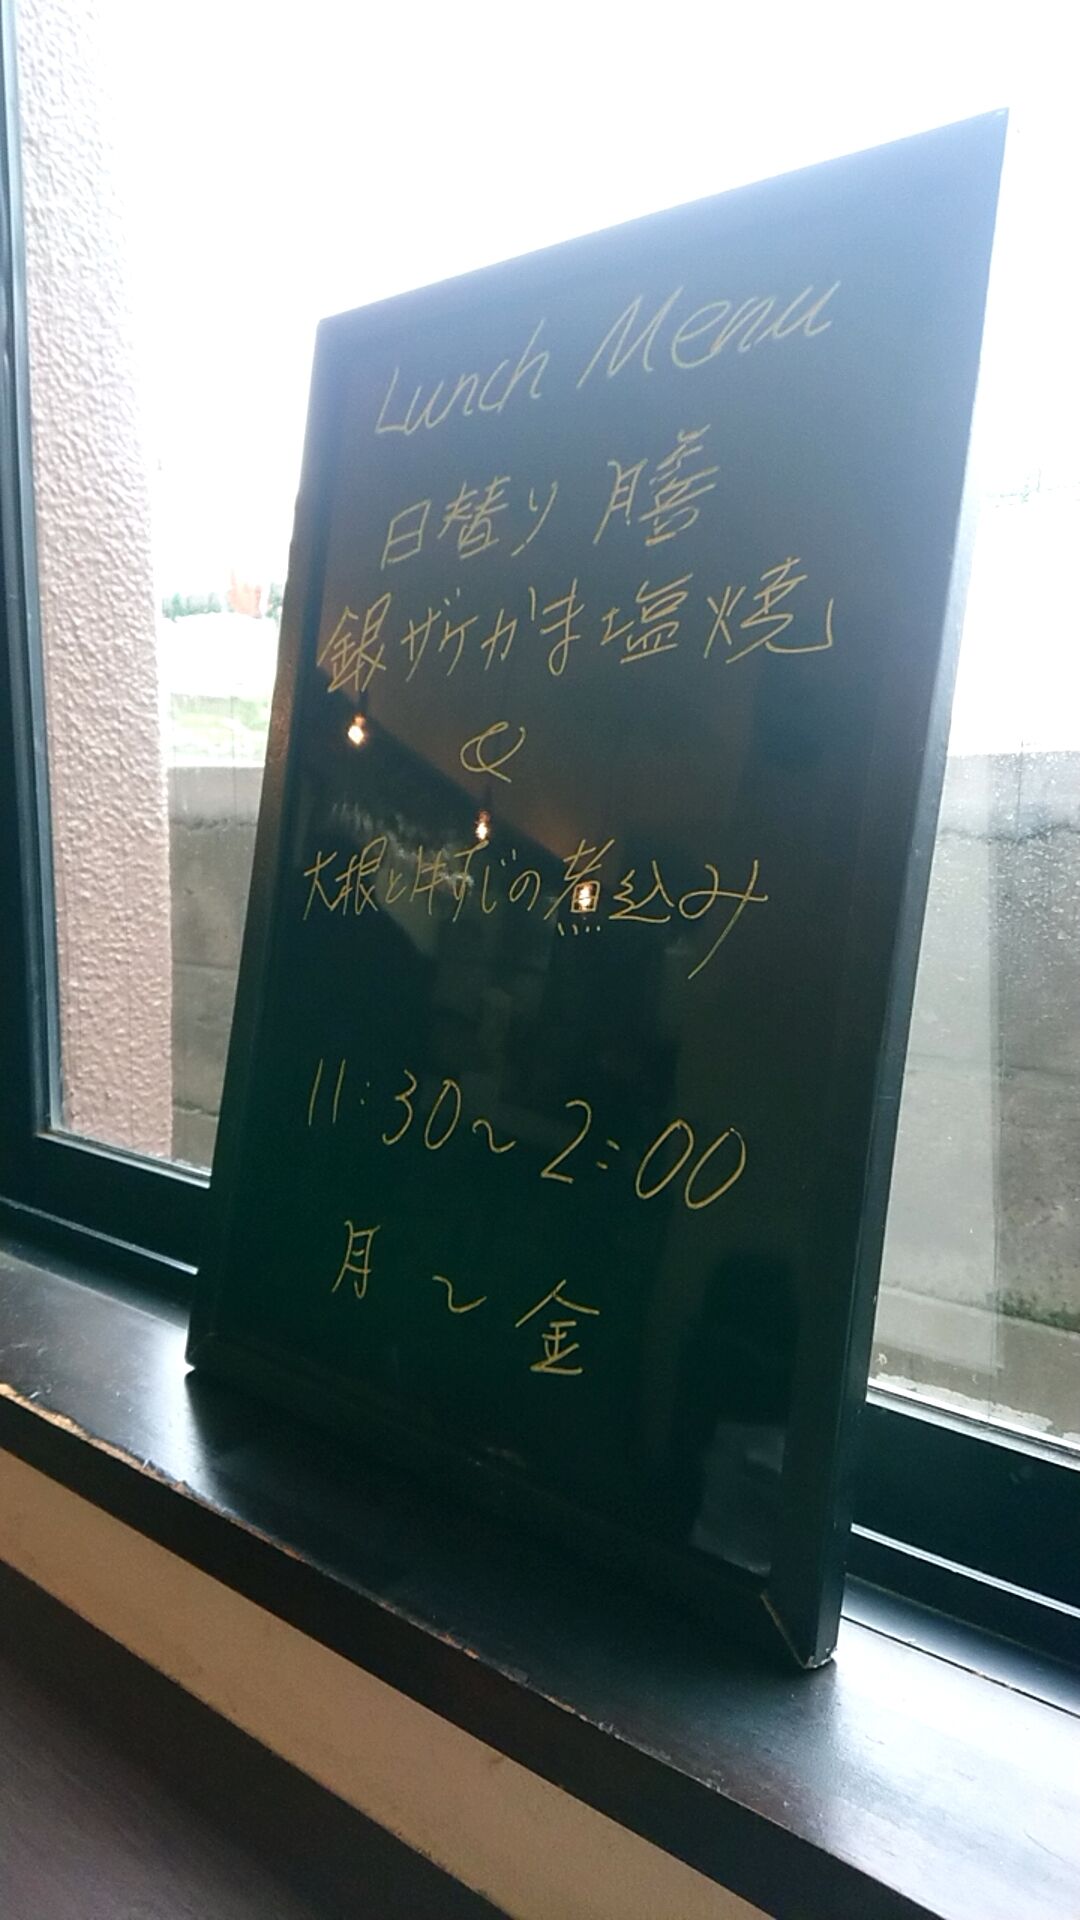 Lunch Menu
日替り膳
銀ザケかま塩焼
&
大根と牛すじの煮込み
11:30~2:00
月~金